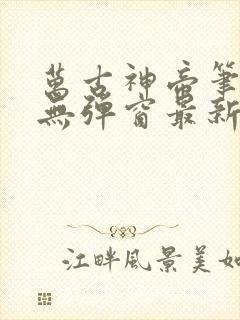 萬古神帝筆
無彈窗最新
江畔風景美如